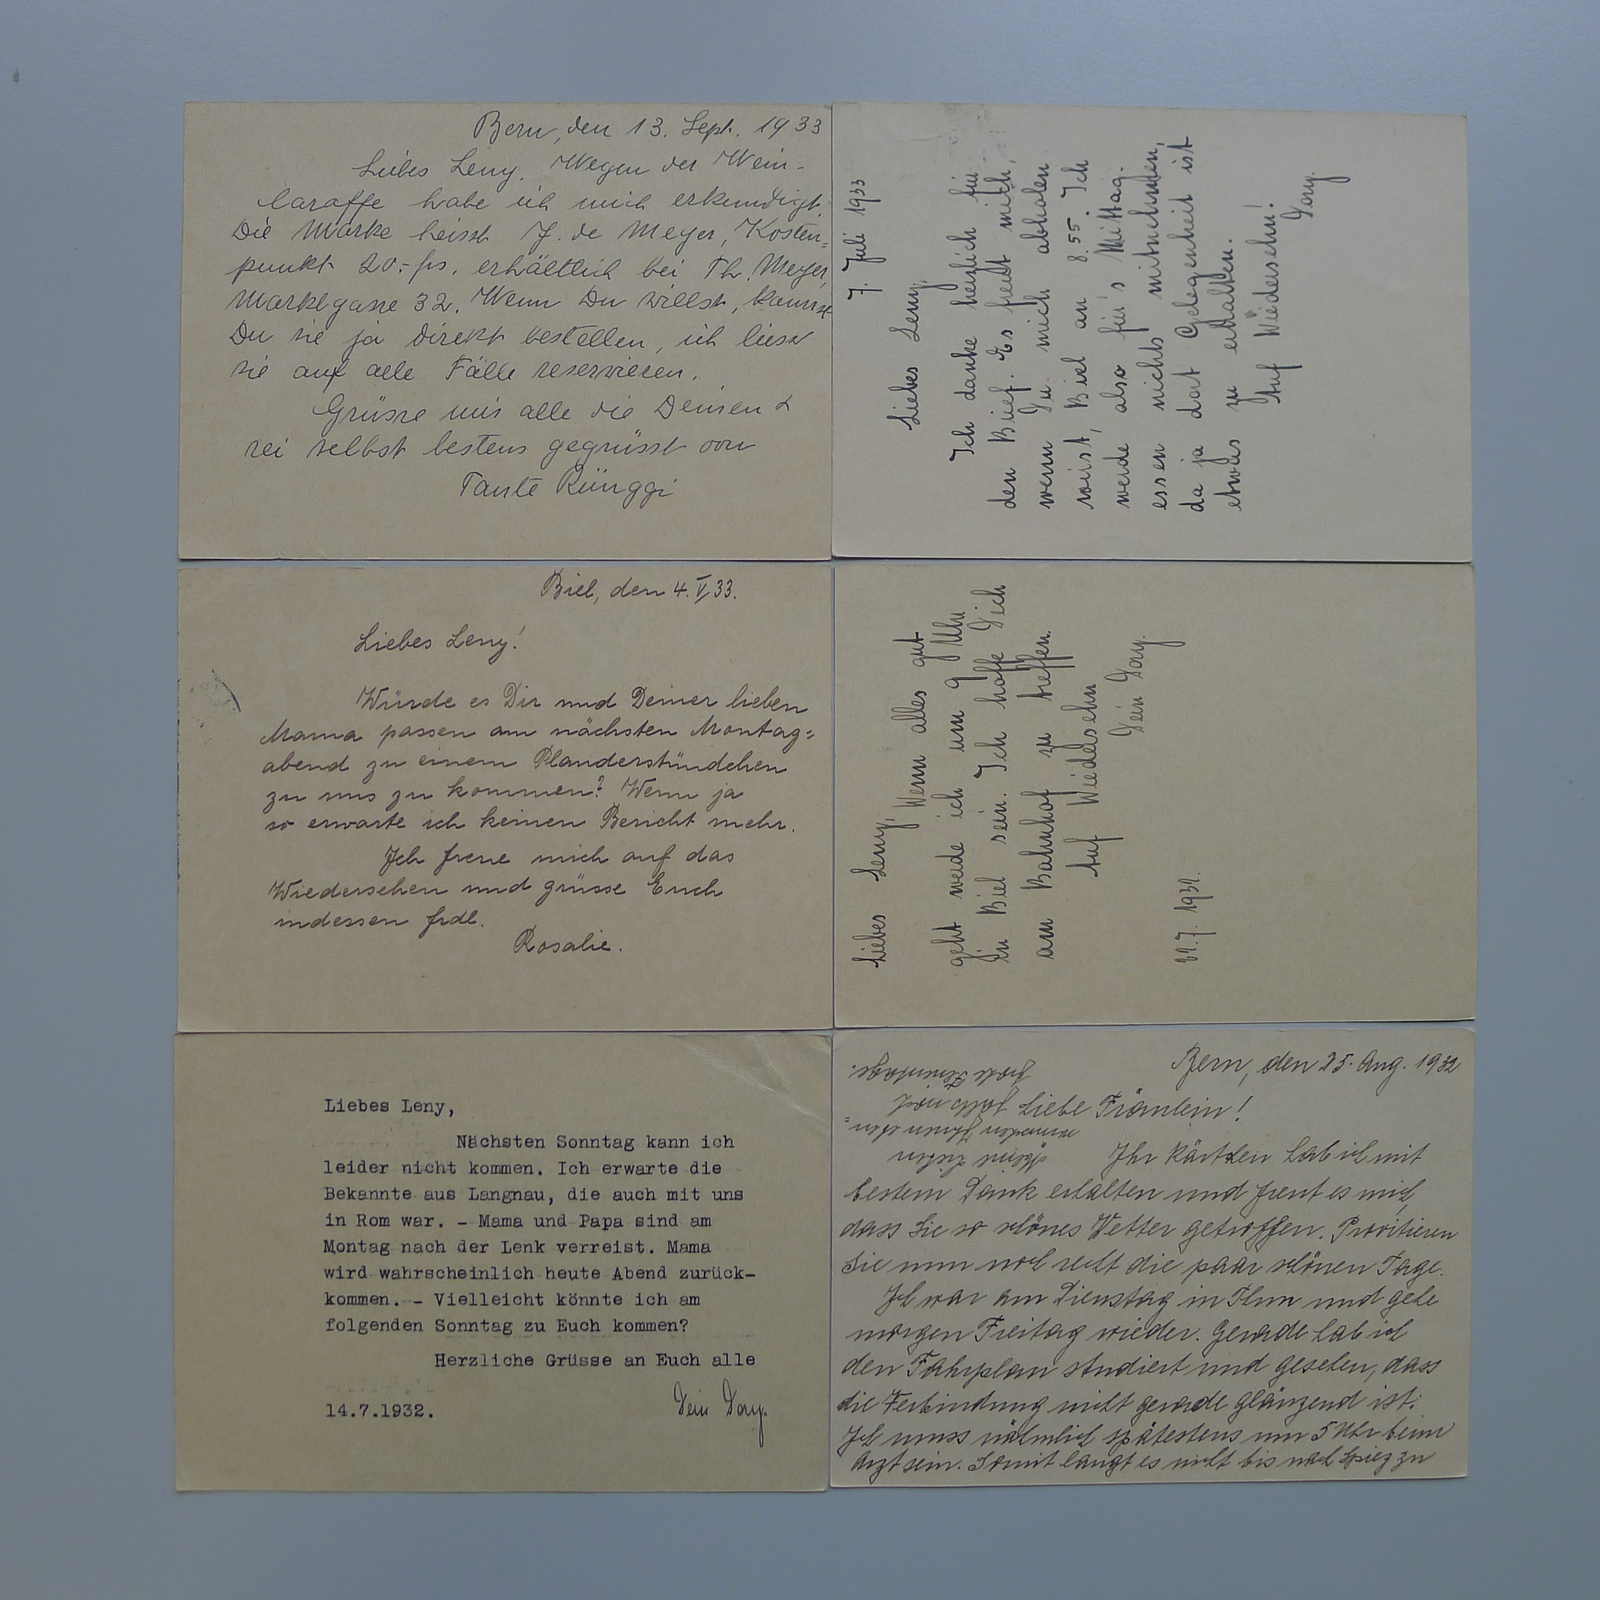 Bern, den 13. Sept. 1933
Liebes Leny. Wegen der Wein-
caraffe habe ich mich erkundigt.
Die Marke heisst J. de Meyer, Kosten-
punkt 20.- frs. erhältlich bei Th. Meyer,
Marktgasse 32. Wenn Du willst, kannst
Du sie ja direkt bestellen, ich liess
sie auf alle Fälle reservieren.
Grüsse mir alle die Deinen &
sei selbst bestens gegrüsst von
Tante Rünggi
7. Juli 1933
Liebes Leny,
Ich danke herzlich für
den Brief. Es freut mich,
wenn Du mich abholen
wirst, Biel an 8.55. Ich
werde also für's Mittag-
essen nichts mitnehmen,
da ja dort Gelegenheit ist
etwas zu erhalten.
Auf Wiedersehn!
Dory.
Biel, den 4. V. 33.
Liebes Leny!
Würde es Dir und Deiner lieben
Mama passen am nächsten Montag=
abend zu einem Plauderstündchen
zu uns zu kommen? Wenn ja
so erwarte ich keinen Bericht mehr.
Ich freue mich auf das
Wiedersehen und grüsse Euch
indessen frdl.
Rosalie.
Liebes Leny, Wenn alles gut
geht werde ich um 9 Uhr
in Biel sein. Ich hoffe Dich
am Bahnhof zu treffen.
Auf Wiedersehn
Dein Dory.
22.7. 1932.
Liebes Leny,
Nächsten Sonntag kann ich
leider nicht kommen. Ich erwarte die
Bekannte aus Langnau, die auch mit uns
in Rom war. - Mama und Papa sind am
Montag nach der Lenk verreist. Mama
wird wahrscheinlich heute Abend zurück-
kommen. - Vielleicht könnte ich am
folgenden Sonntag zu Euch kommen?
Herzliche Grüsse an Euch alle
14.7.1932. Dein Dory.
Bern, den 25. Aug. 1932
Liebe Fräulein!
Ihr Kärtchen hab ich mit
bestem Dank erhalten und freut es mich,
dass Sie so schönes Wetter getroffen. Provitieren
Sie nun noch recht die paar schönen Tage.
Ich war am Dienstag in Thun und gehe
morgen Freitag wieder. Gerade hab ich
den Fahrplan studiert und gesehen, dass
die Verbindung nicht gerade glänzend ist.
Ich muss nämlich spätestens um 5 Uhr beim
Arzt sein. Somit langt es nicht bis nach Spiez zu